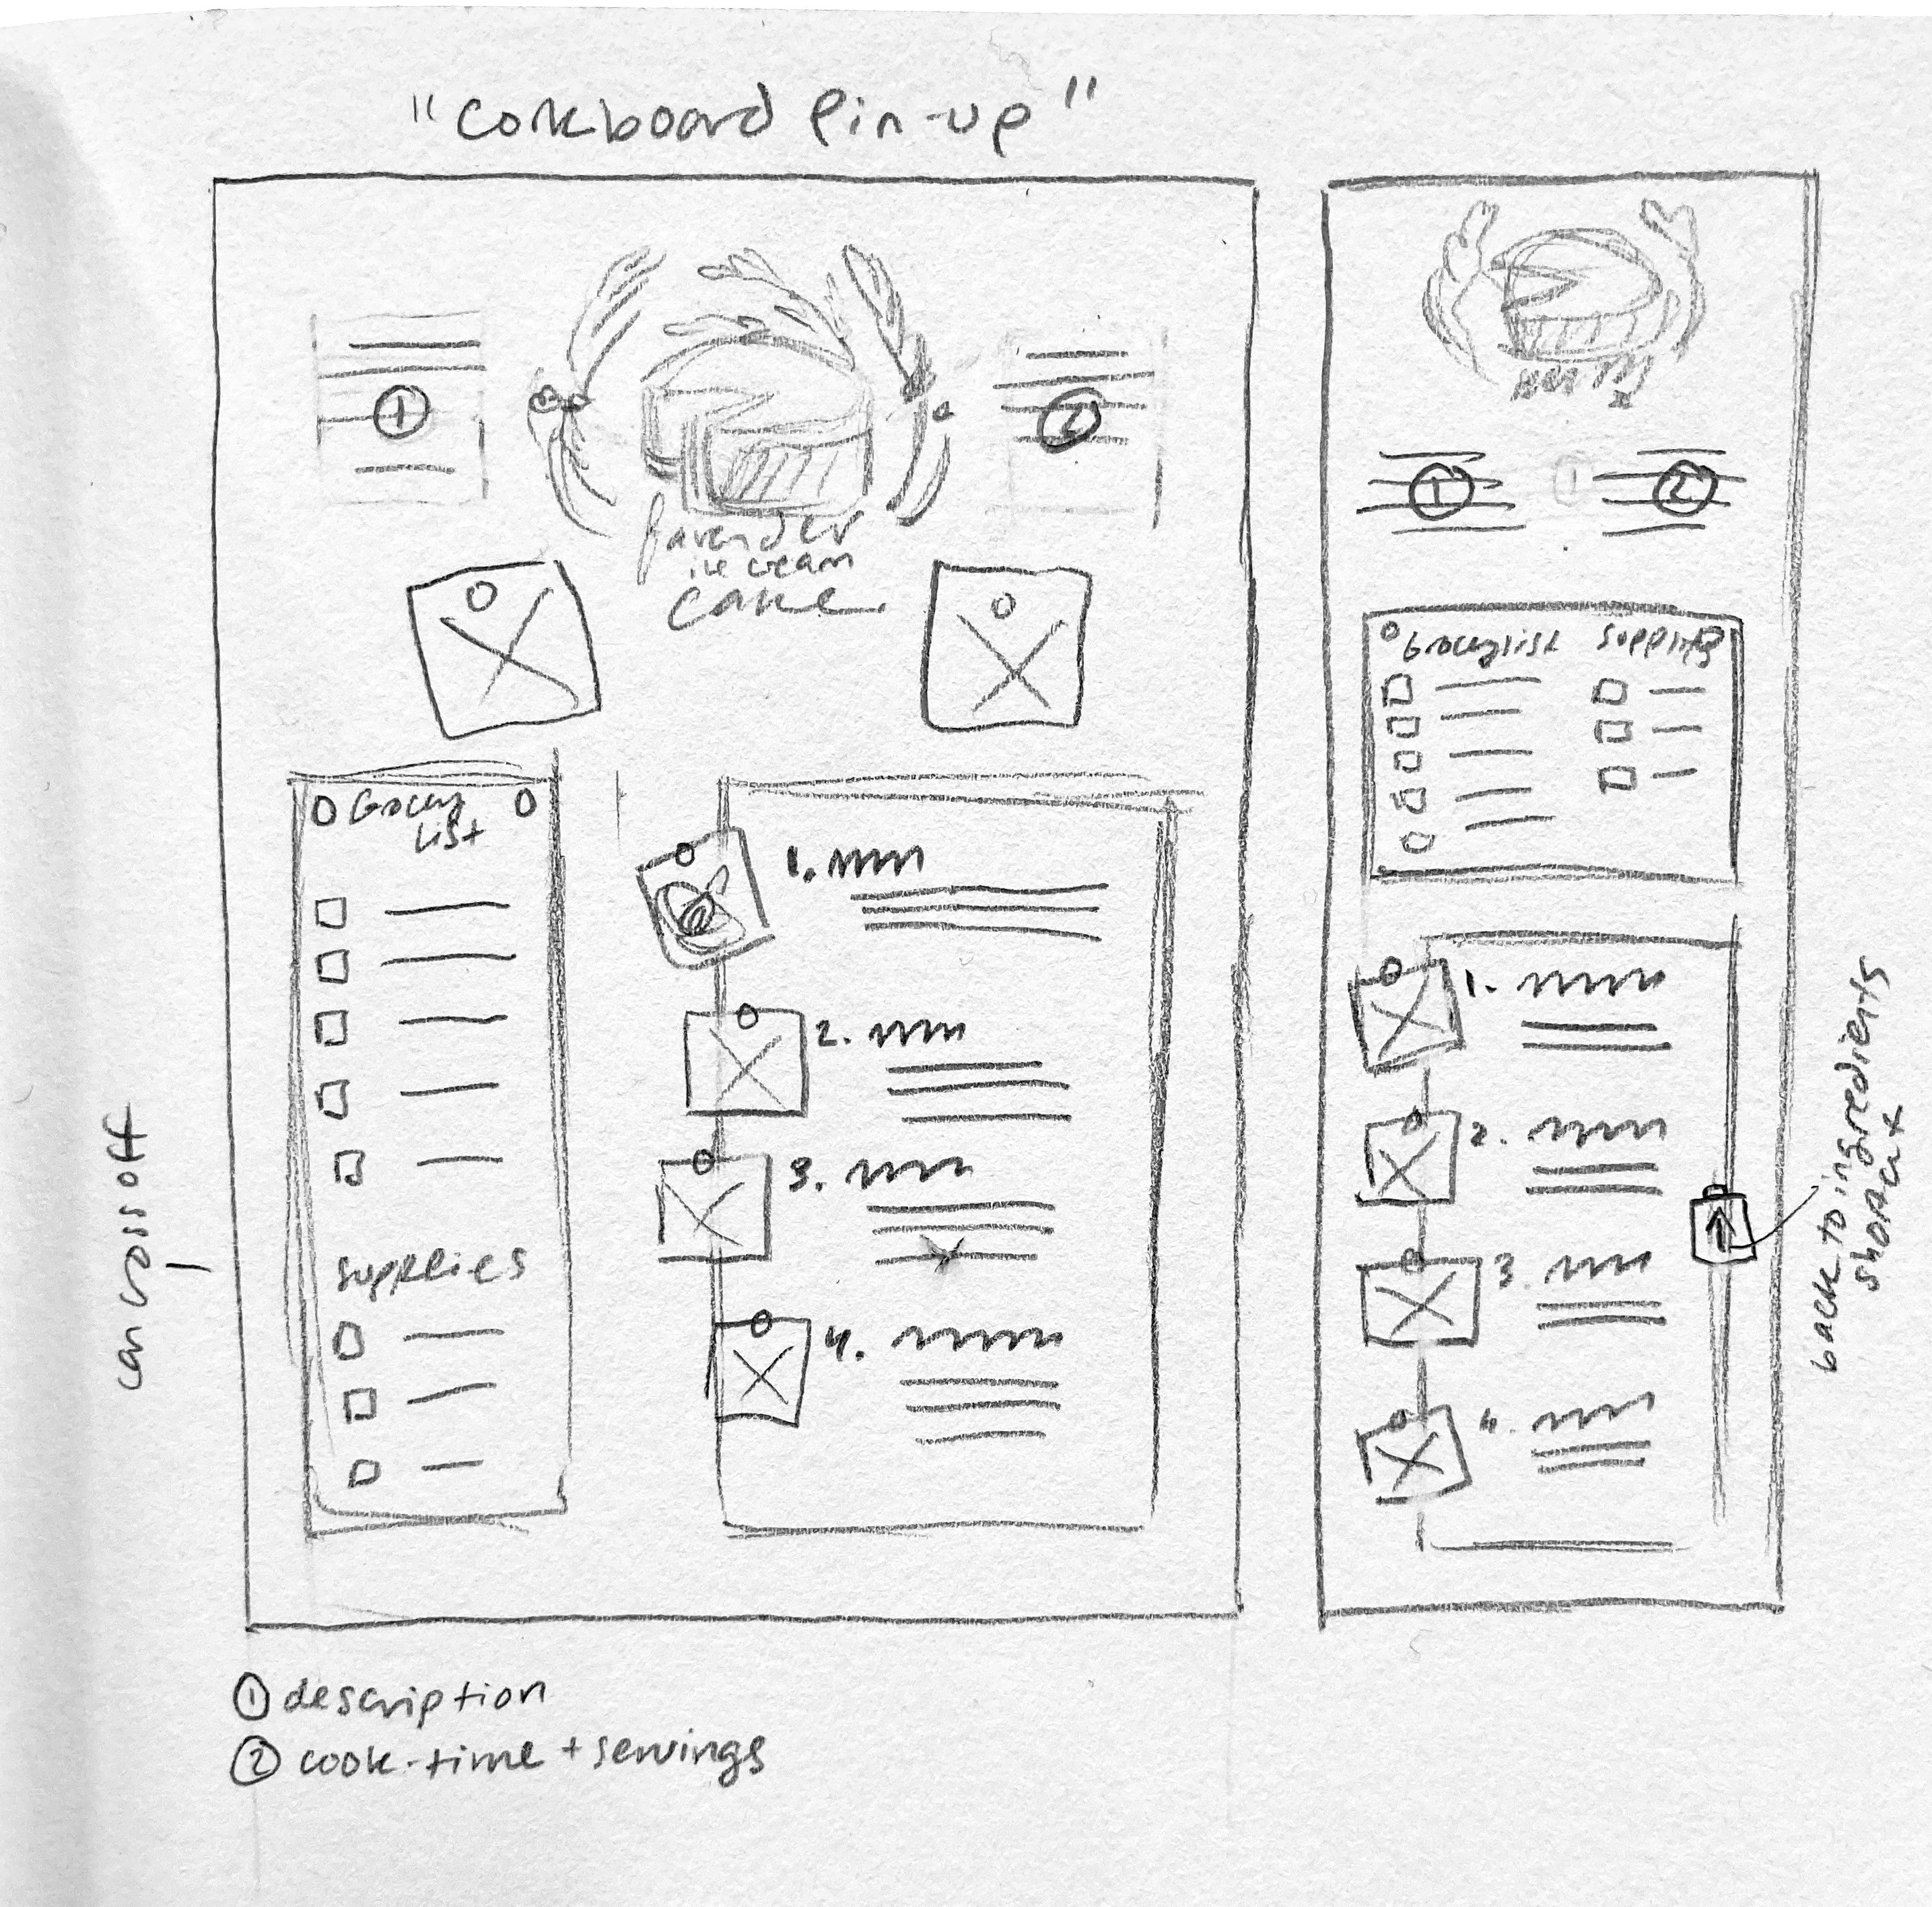 "Corkboard Pin-up"
①
②
lavender
ice cream
cake
Grocery
List
1.
2.
3.
4.
Supplies
can cross off
①
②
Grocery list
Supplies
1.
2.
3.
4.
back to ingredients
shortcut
① description
② cook-time + servings